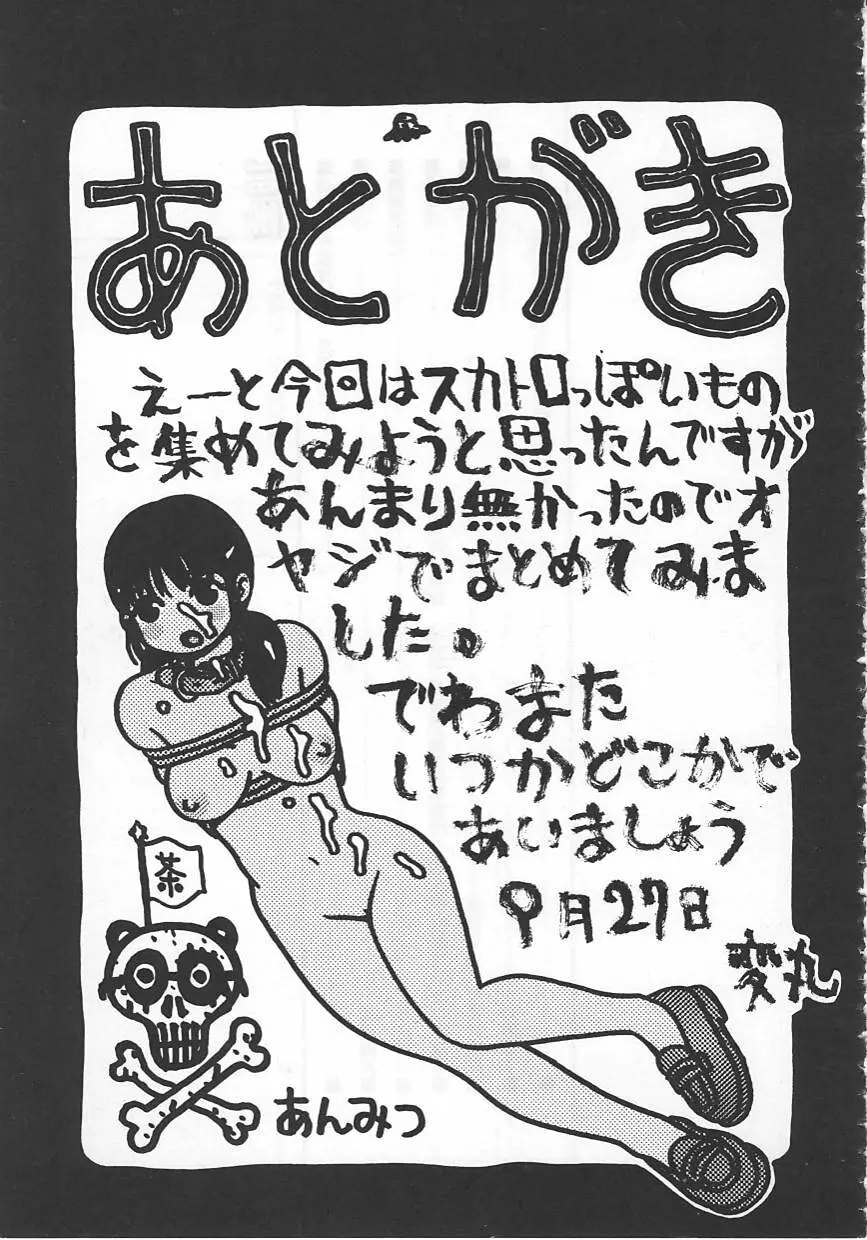 あとがき
えーと今回はスカトロっぽいもの
を集めてみようと思ったんですが
あんまり無かったのでオ
ヤジでまとめてみま
した。
でわまた
いつかどこかで
あいましょう
9月27日
変丸
茶
あんみつ